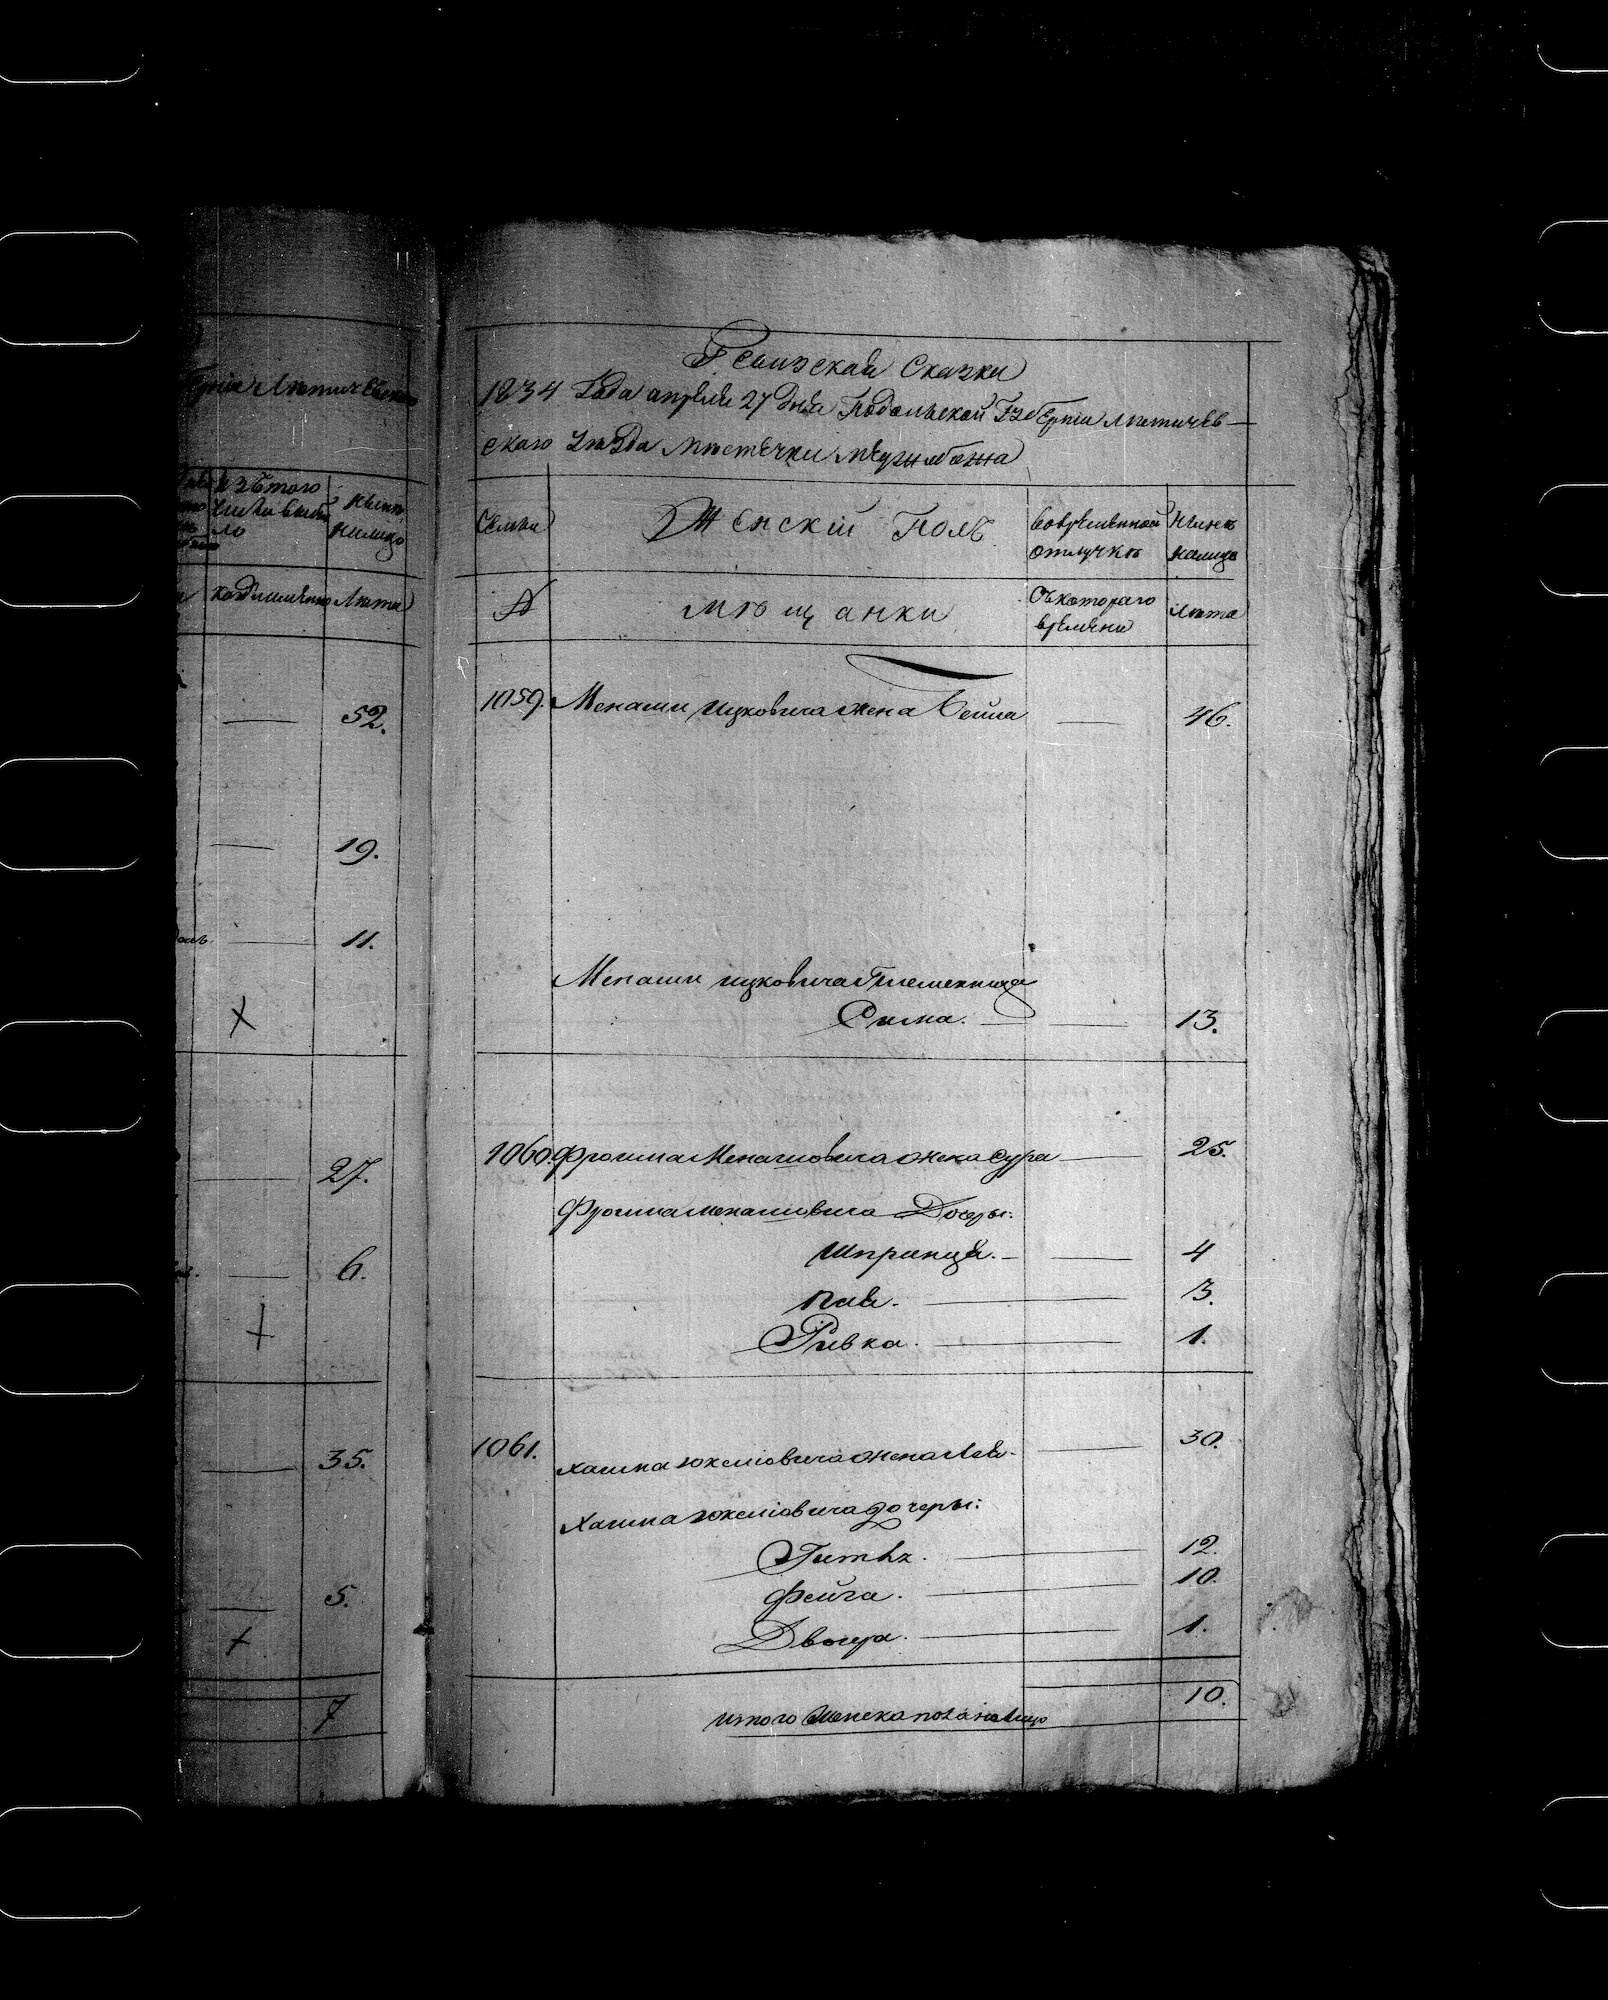 Ревизская Сказка
1834 Года апреля 27 дня Подольской Губернии Летичев-
скаго Уезда местечки Меджибожа
Семьи
Женскій Полъ
Вовременной отлучке
Ныне налицо
№
мещанки
Съкотораго времени
лета
1059. Менаши Ицковича жена Бейла — 46.
Менаши ицковича племенница
Сима. — 13.
1060. Фроима Менашовича жена Сура — 25.
Фроима менашовича Дочеры:
Шпринца. — 4
Пая. — 3.
Ривка. — 1.
1061. Хаима Юкелiовича жена Лея. — 30.
Хаима Юкелiовича дочеры:
Гитля. — 12.
Фейга. — 10.
Двойра. — 1.
итого женска пола налицо 10.
изъ того
числа выбы
ло
Ныне
налицо
когда именно
Лета
— 52.
— 19.
— 11.
— 27.
— 6.
— 35.
— 5.
7